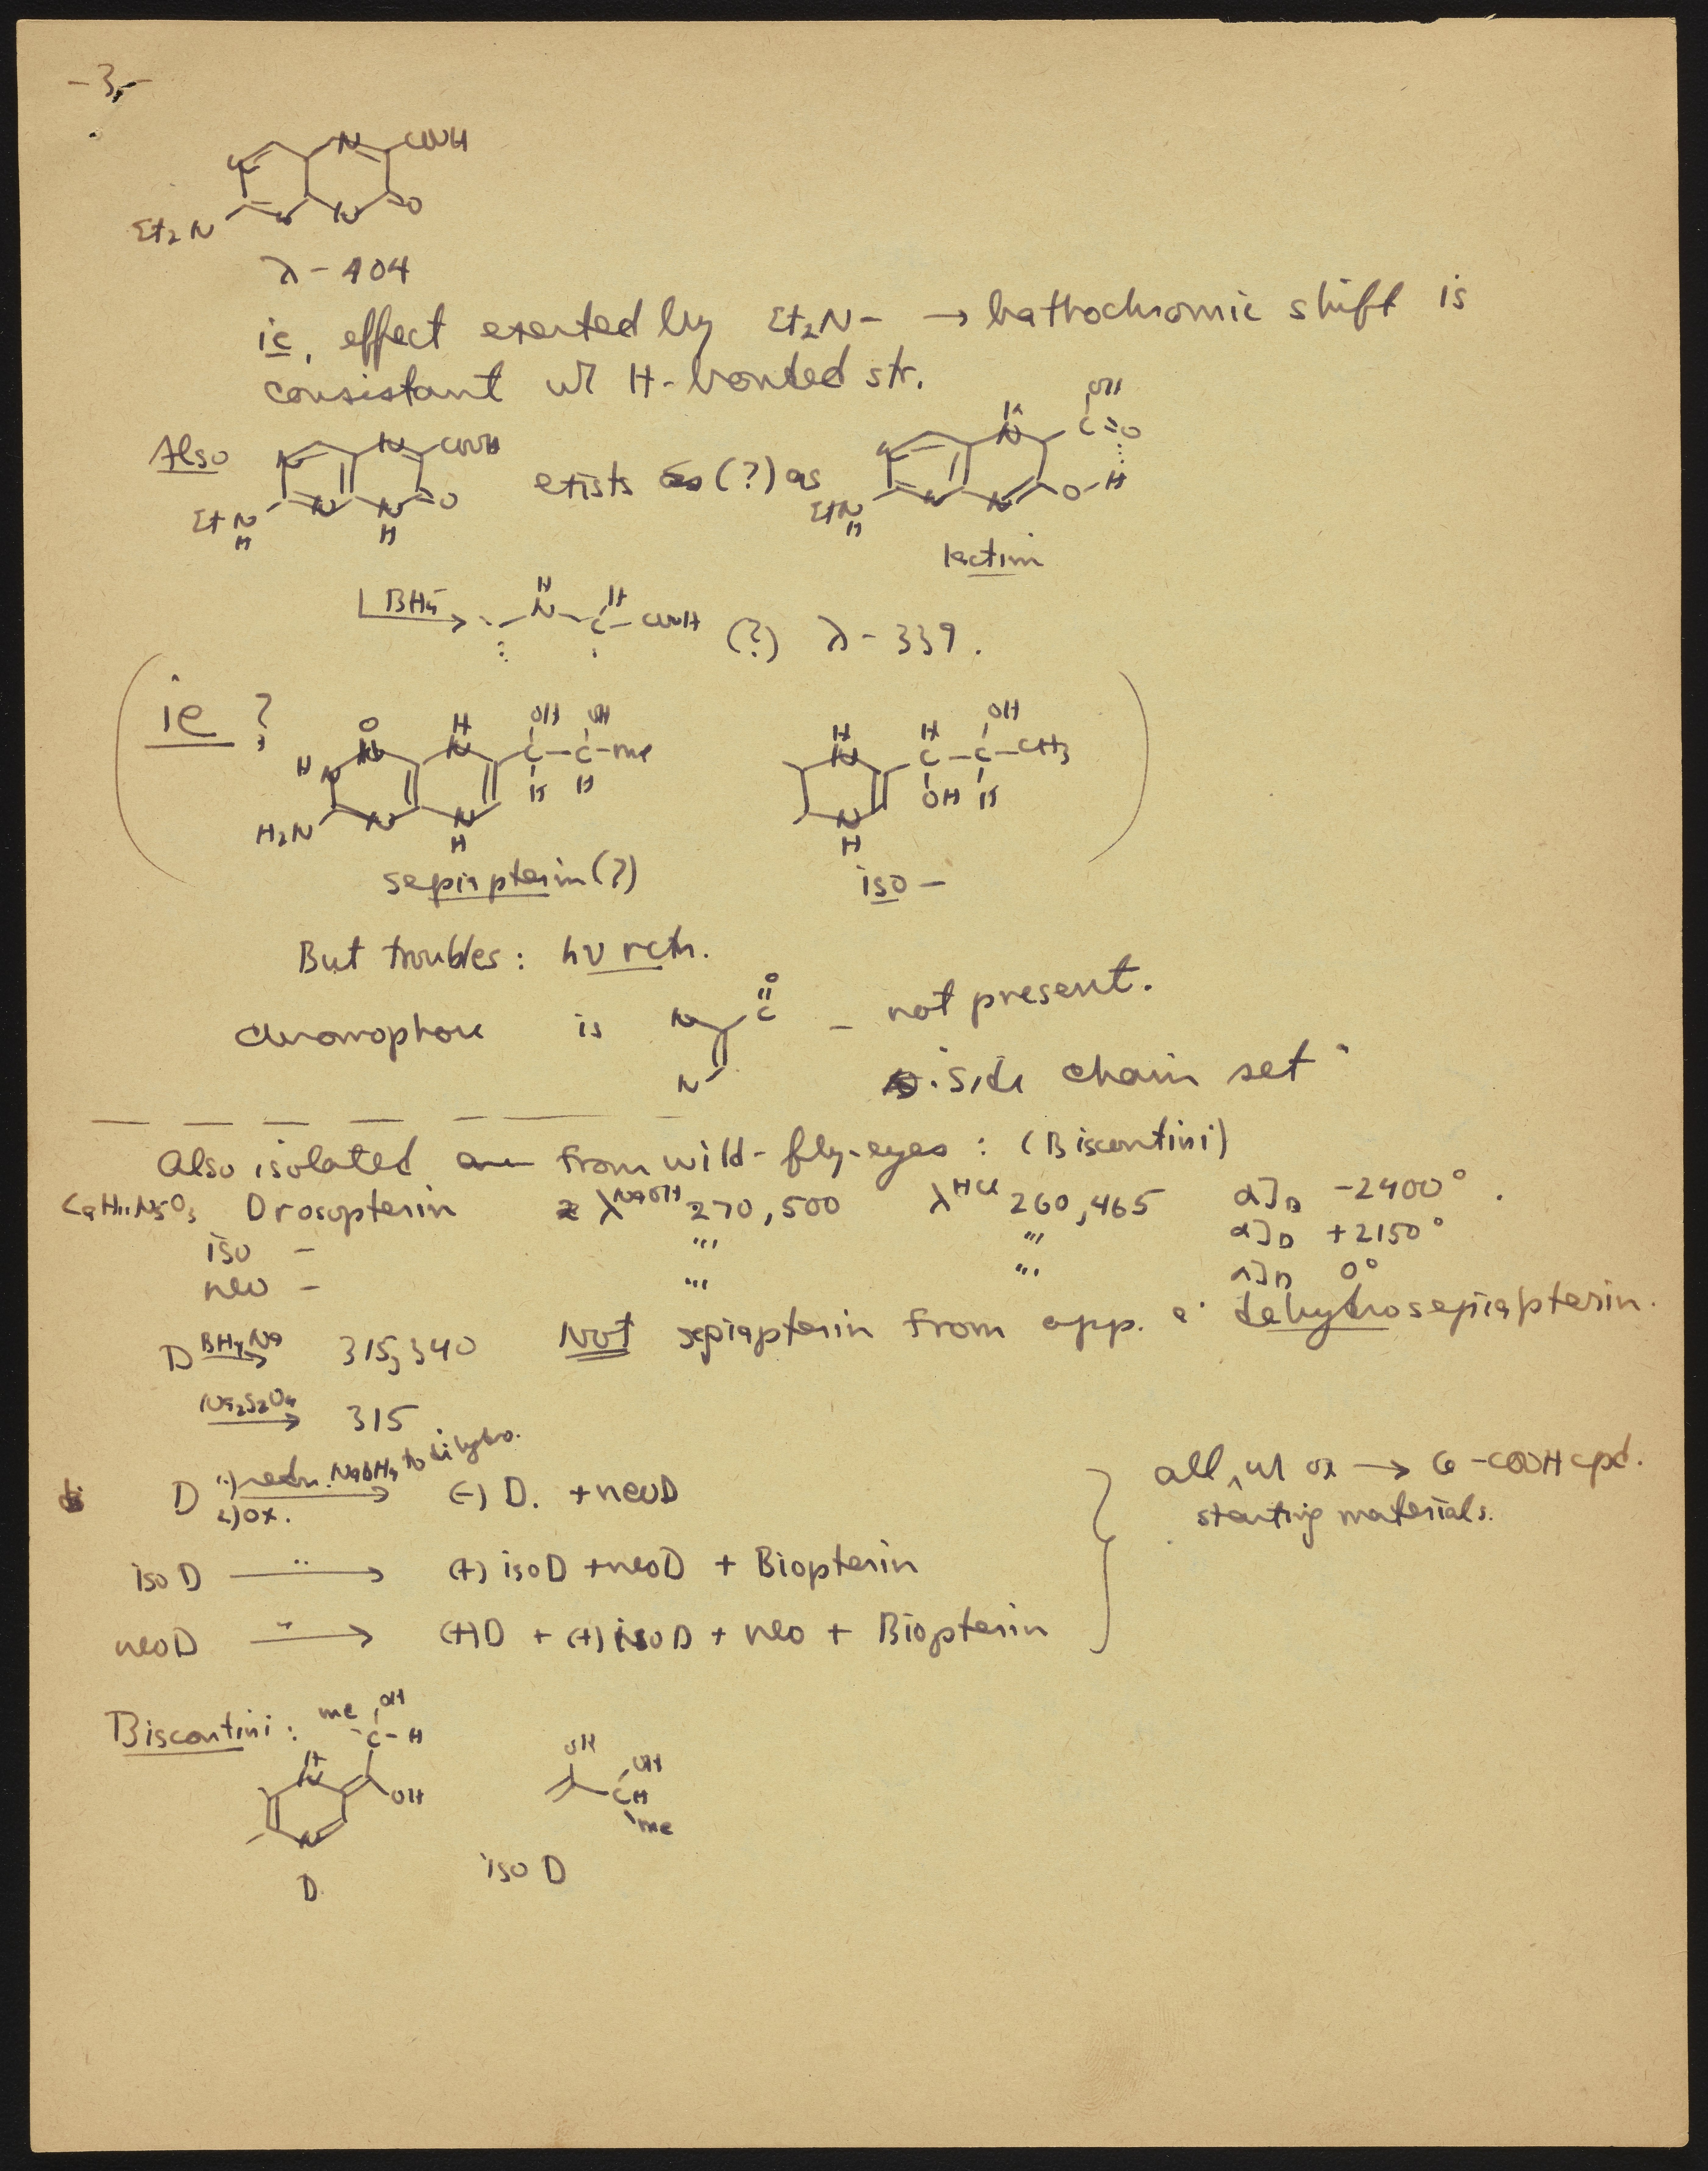 -3-
N
N
COOH
Et₂N
N
N
O
λ - 404
ie, effect exerted by Et₂N- → bathochromic shift is
consistant w/ H-bonded str.
Also
N
N
COOH
EtN
H
N
N
H
O
exists (?) as
N
H
N
OH
C=O
EtN
H
N
N
O-H
lactim
BH₄⁻
H
N
H
C-COOH (?) λ - 339.
ie ?
O
H
N
H
N
OH OH
C-C-Me
H H
H₂N
N
N
H
sepiapterin (?)
H
N
H
C
OH
C-CH₃
OH H
N
H
iso -
But troubles: hν rctn.
chromophore is
N
N
O
C
- not present.
side chain set
Also isolated from wild-fly-eyes : (Biscontini)
C₉H₁₁N₅O₃ Drosopterin λᴺᵃᴼᴴ 270, 500 λᴴᶜˡ 260, 465 α]D -2400° .
iso - " " α]D +2150°
neo - " " α]D 0°
D BH₄Na → 315, 340 Not sepiapterin from opp. dehydrosepiapterin.
Na₂S₂O₄ → 315
D 1) redn. NaBH₄ to dihydro. 2) ox. → (-) D. + neoD
iso D " → (+) isoD + neoD + Biopterin
neoD " → (+)D + (+) isoD + neo + Biopterin
all, w/ ox → 6-COOH cpd.
starting materials.
Biscontini:
Me OH
C-H
H
N
OH
N
D
OH
OH
CH
Me
iso D